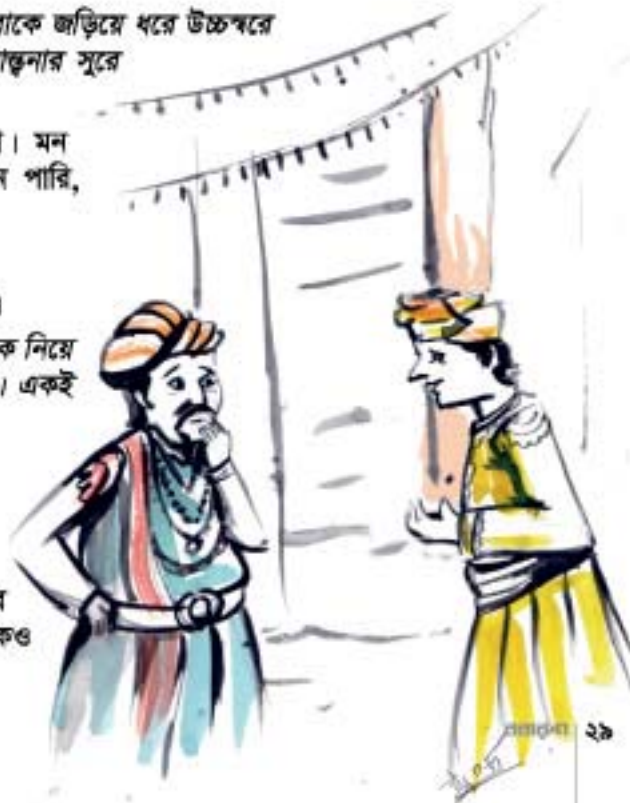 রাকে জড়িয়ে ধরে উচ্চস্বরে
ান্ত্বনার সুরে
া। মন
ন পারি,
।
ক নিয়ে
। একই
র
কও
২৯